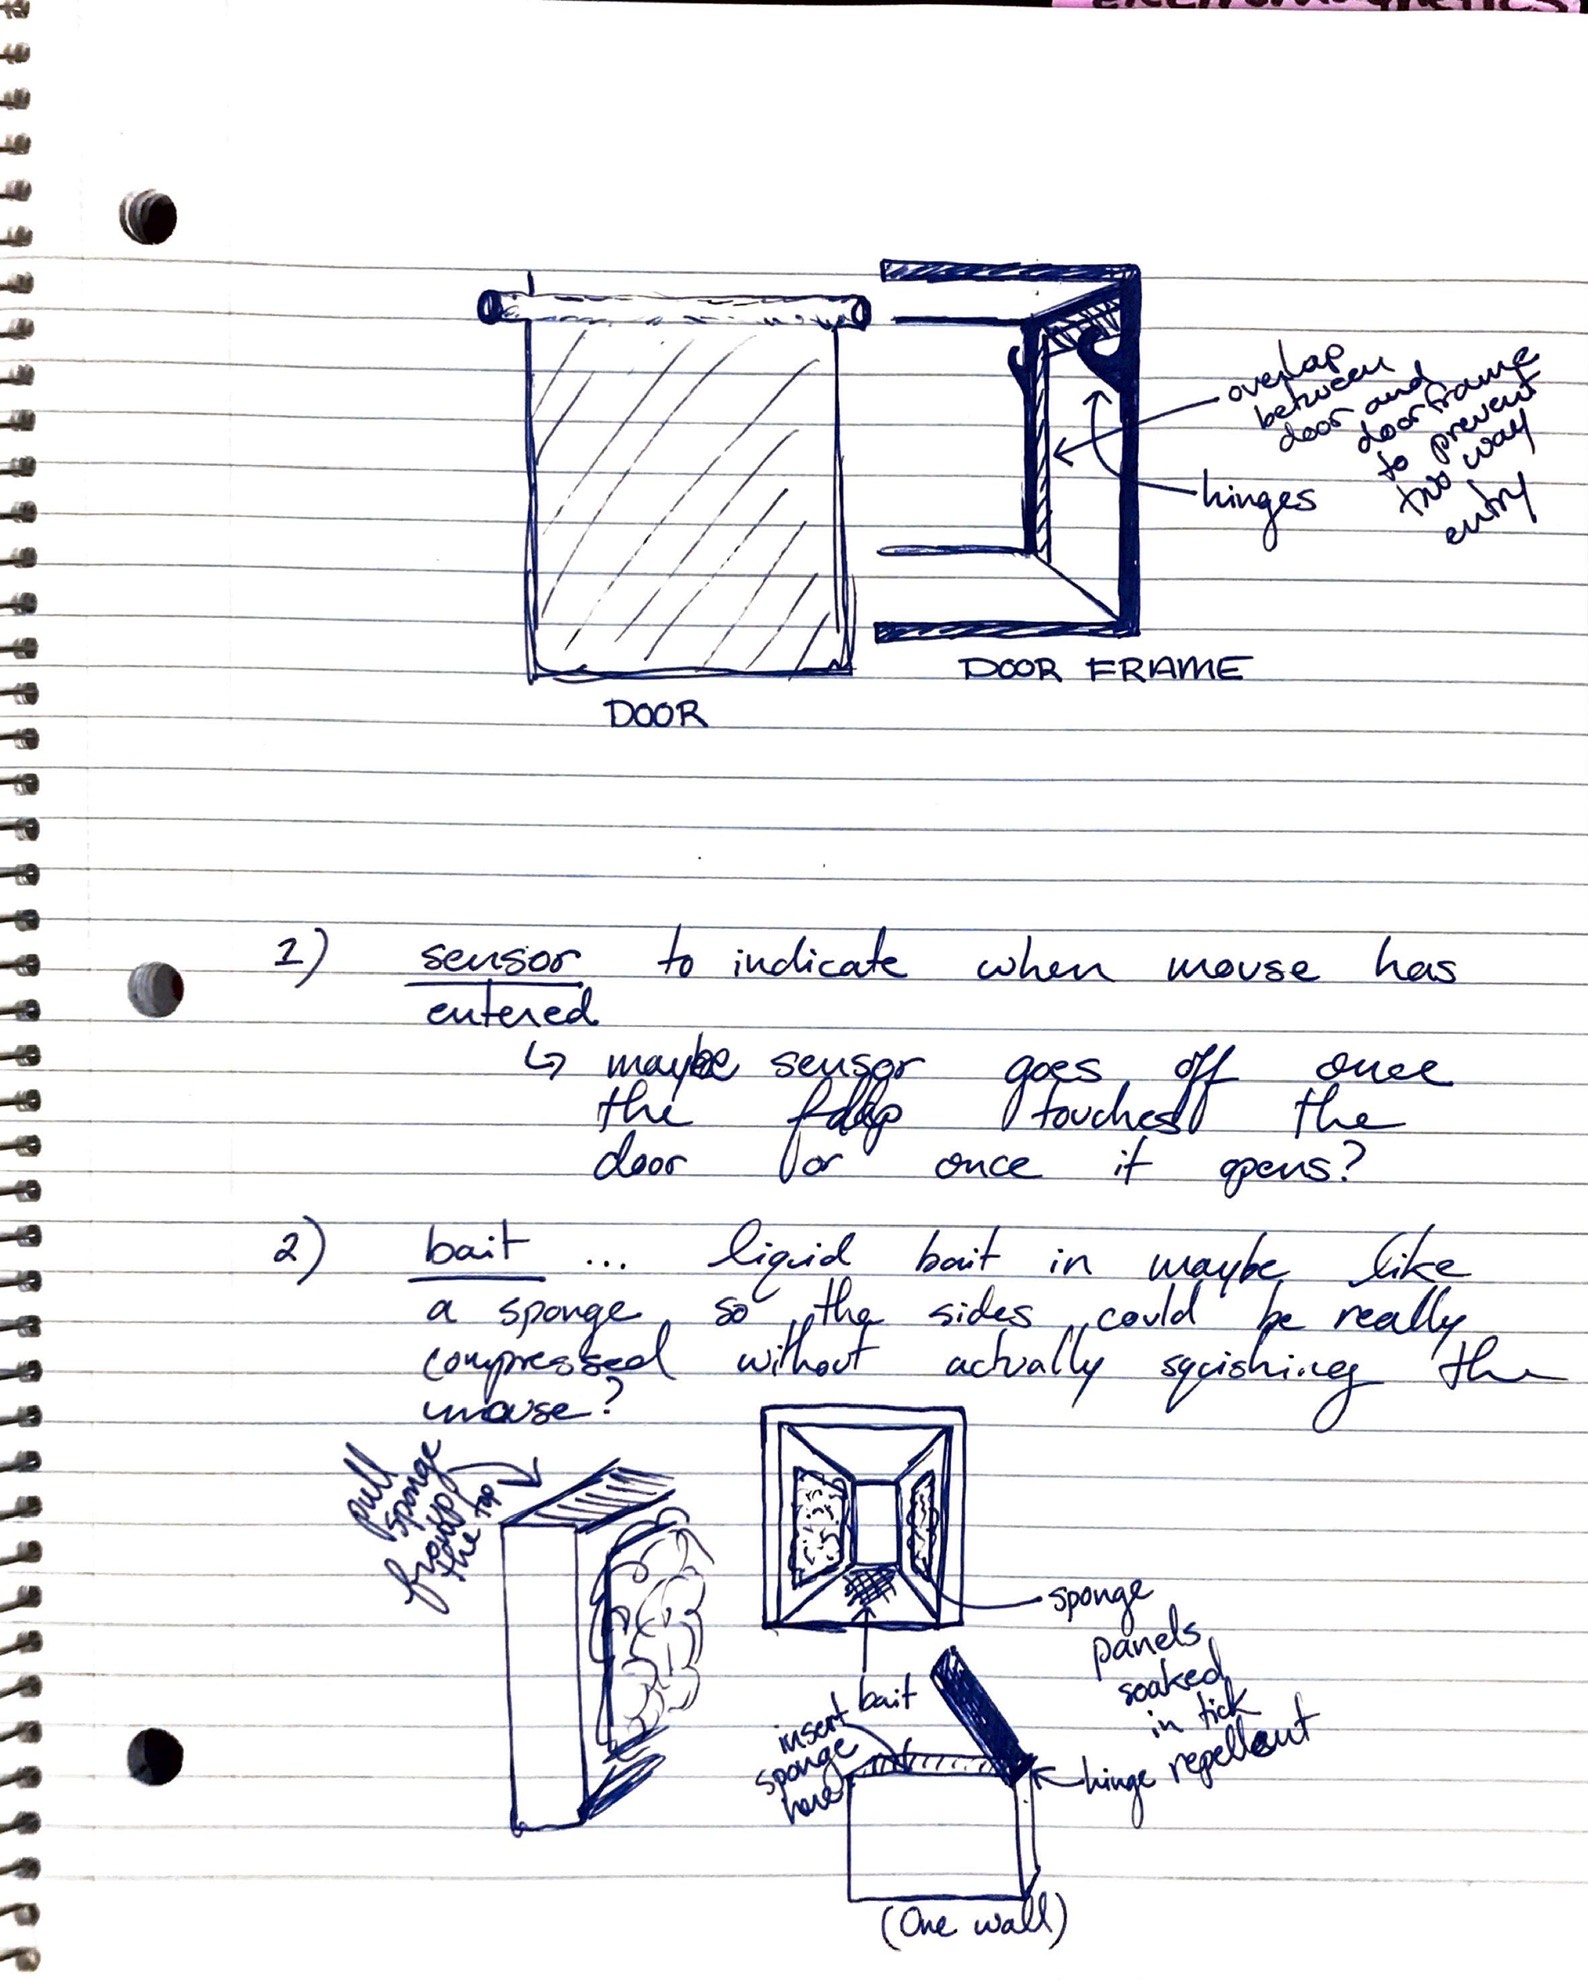 overlap
between
door and
doorframe
to prevent
two way
entry
hinges
DOOR FRAME
DOOR
1) sensor to indicate when mouse has
entered
↳ maybe sensor goes off once
the flap touches the
door or once it opens?
2) bait ... liquid bait in maybe like
a sponge so the sides could be really
compressed without actually squishing the
mouse?
pull
sponge
up
from
the top
sponge
panels
soaked
in tick
repellent
bait
insert
sponge
here
hinge
(One wall)